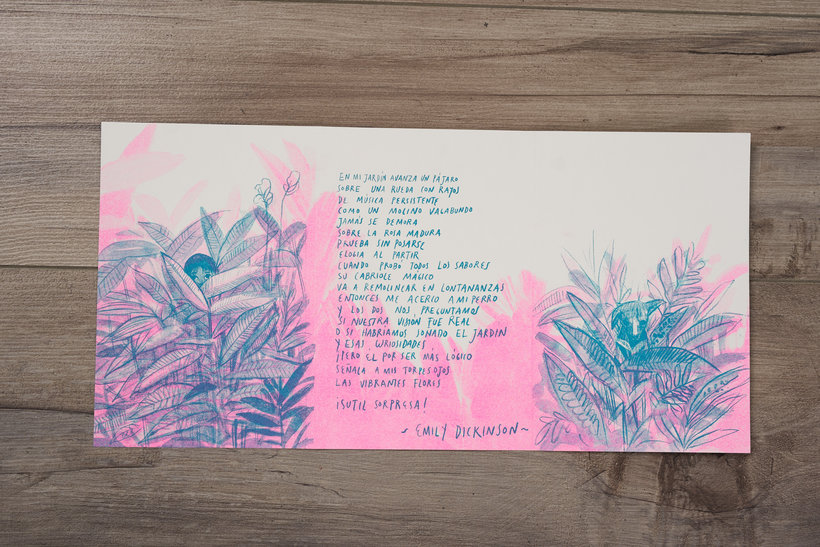 EN MI JARDÍN AVANZA UN PÁJARO
SOBRE UNA RUEDA CON RAYOS
DE MÚSICA PERSISTENTE
COMO UN MOLINO VAGABUNDO
JAMÁS SE DEMORA
SOBRE LA ROSA MADURA
PRUEBA SIN POSARSE
ELOGIA AL PARTIR
CUANDO PROBÓ TODOS LOS SABORES
SU CABRIOLE MÁGICO
VA A REMOLINEAR EN LONTANANZAS
ENTONCES ME ACERCO A MI PERRO
Y LOS DOS NOS PREGUNTAMOS
SI NUESTRA VISIÓN FUE REAL
O SI HABRÍAMOS SOÑADO EL JARDÍN
Y ESAS CURIOSIDADES
¡PERO EL POR SER MÁS LÓGICO
SEÑALA A MIS TORPES OJOS
LAS VIBRANTES FLORES
¡SUTIL SORPRESA!
~ EMILY DICKINSON ~